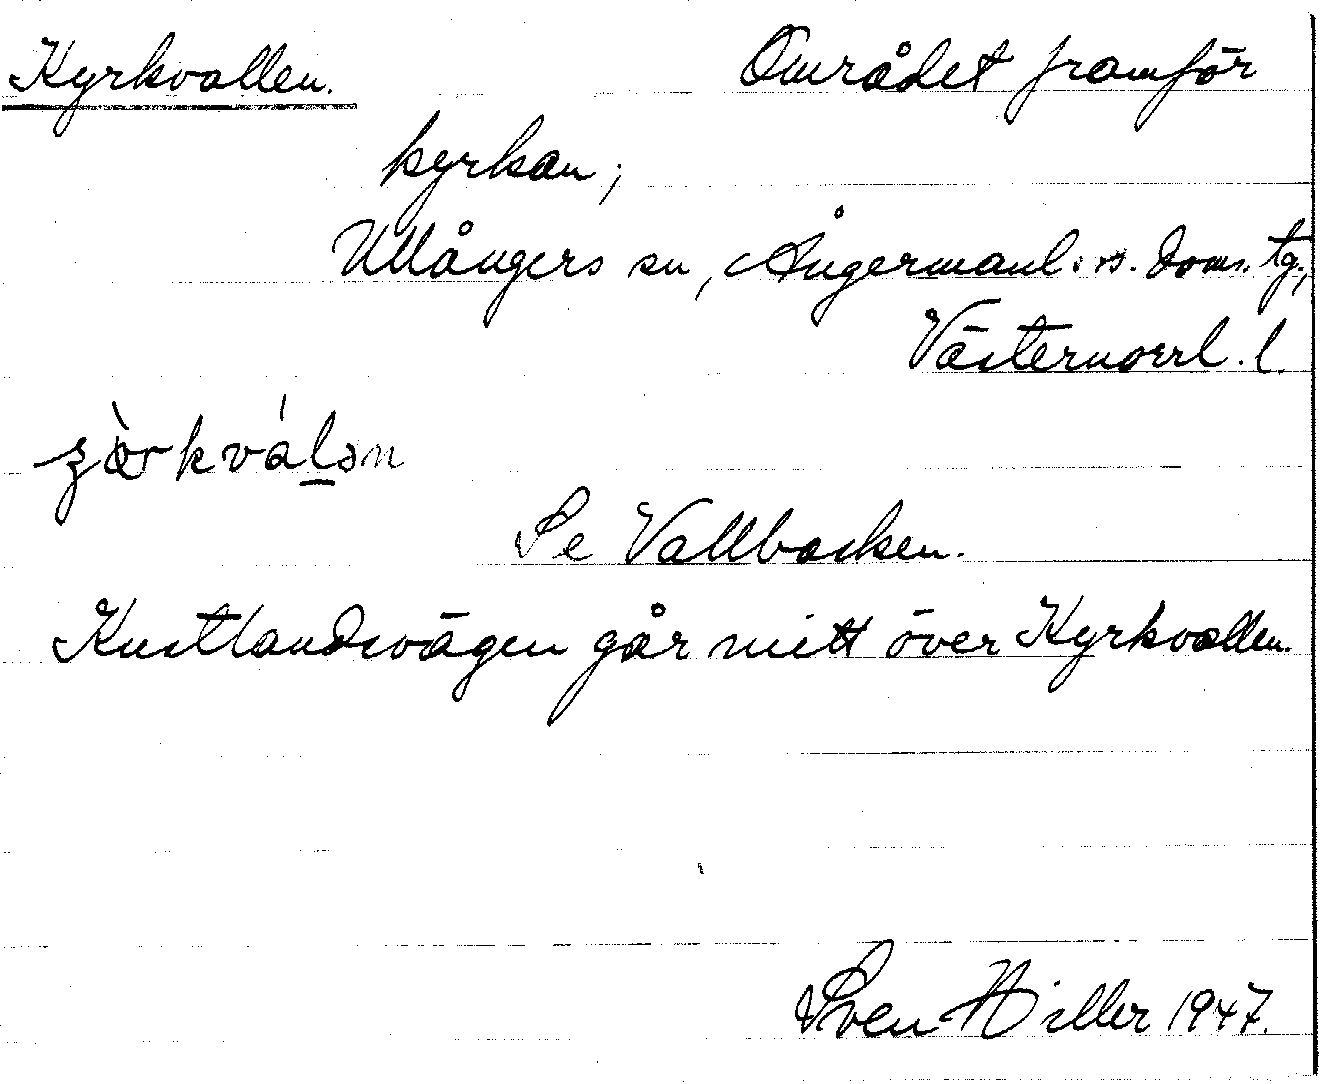 Kyrkvallen. Området framför
kyrkan;
Ullångers sn, Ångermanl. s. doms. tg.,
Västernorrl. l.
Se Vallbacken.
Kustlandsvägen går mitt över Kyrkvallen.
Sven Hiller 1947.